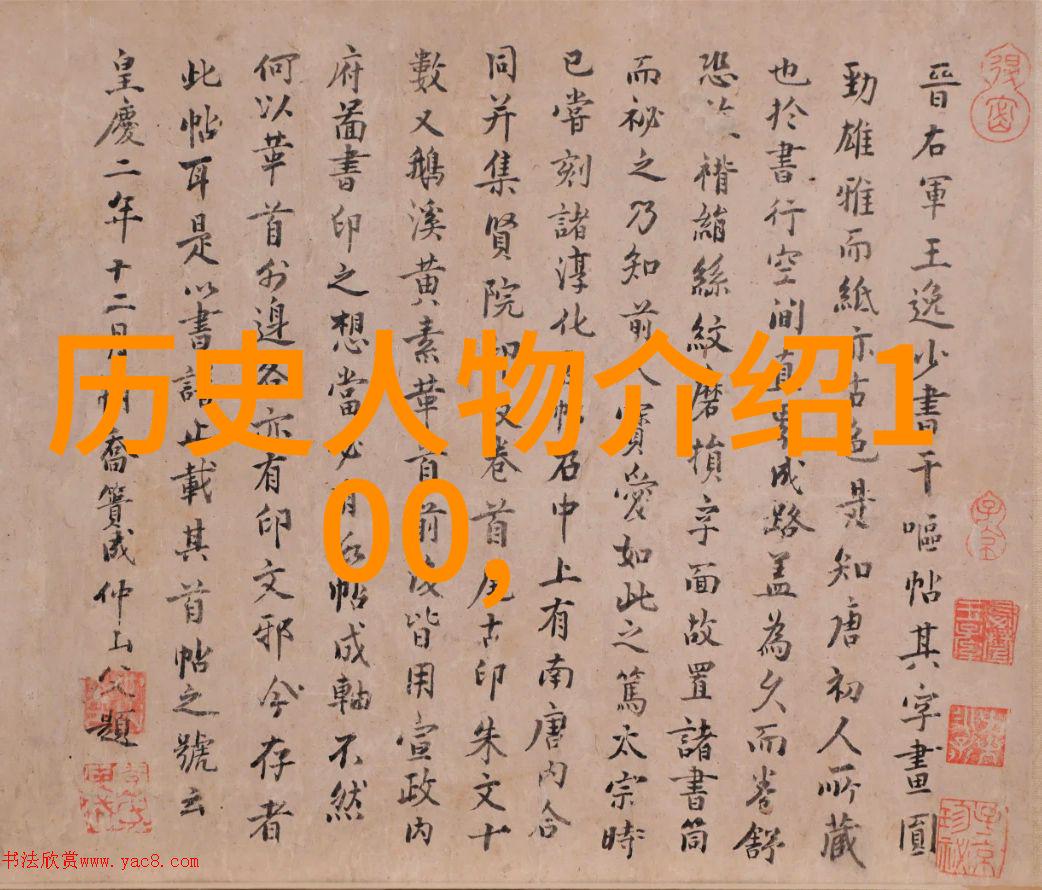 晉右軍王逸少書干嘔帖其字畫圓
勁雄雅而紙亦古色是知唐初人所藏
也於書行空澗真書成路蓋為久而卷舒
恐褙縮絲紋磨損字面故置諸書筒
而祕之乃知前人寶愛如此之篤太宗時
已嘗刻諸淳化帖石中上有南唐內合
同并集賢院印及卷首尾古印朱文十
數又鵝溪黃素華首前後皆用宣政內
府圖書印之想當必有名帖成軸不然
何以華首外邊各亦有印文邪今存者
此帖耳是以書譜止載其首帖之號云
皇慶二年十二月朔喬簣成仲山父題
历史人物介绍1
00,
书法欣赏www.yac8.com